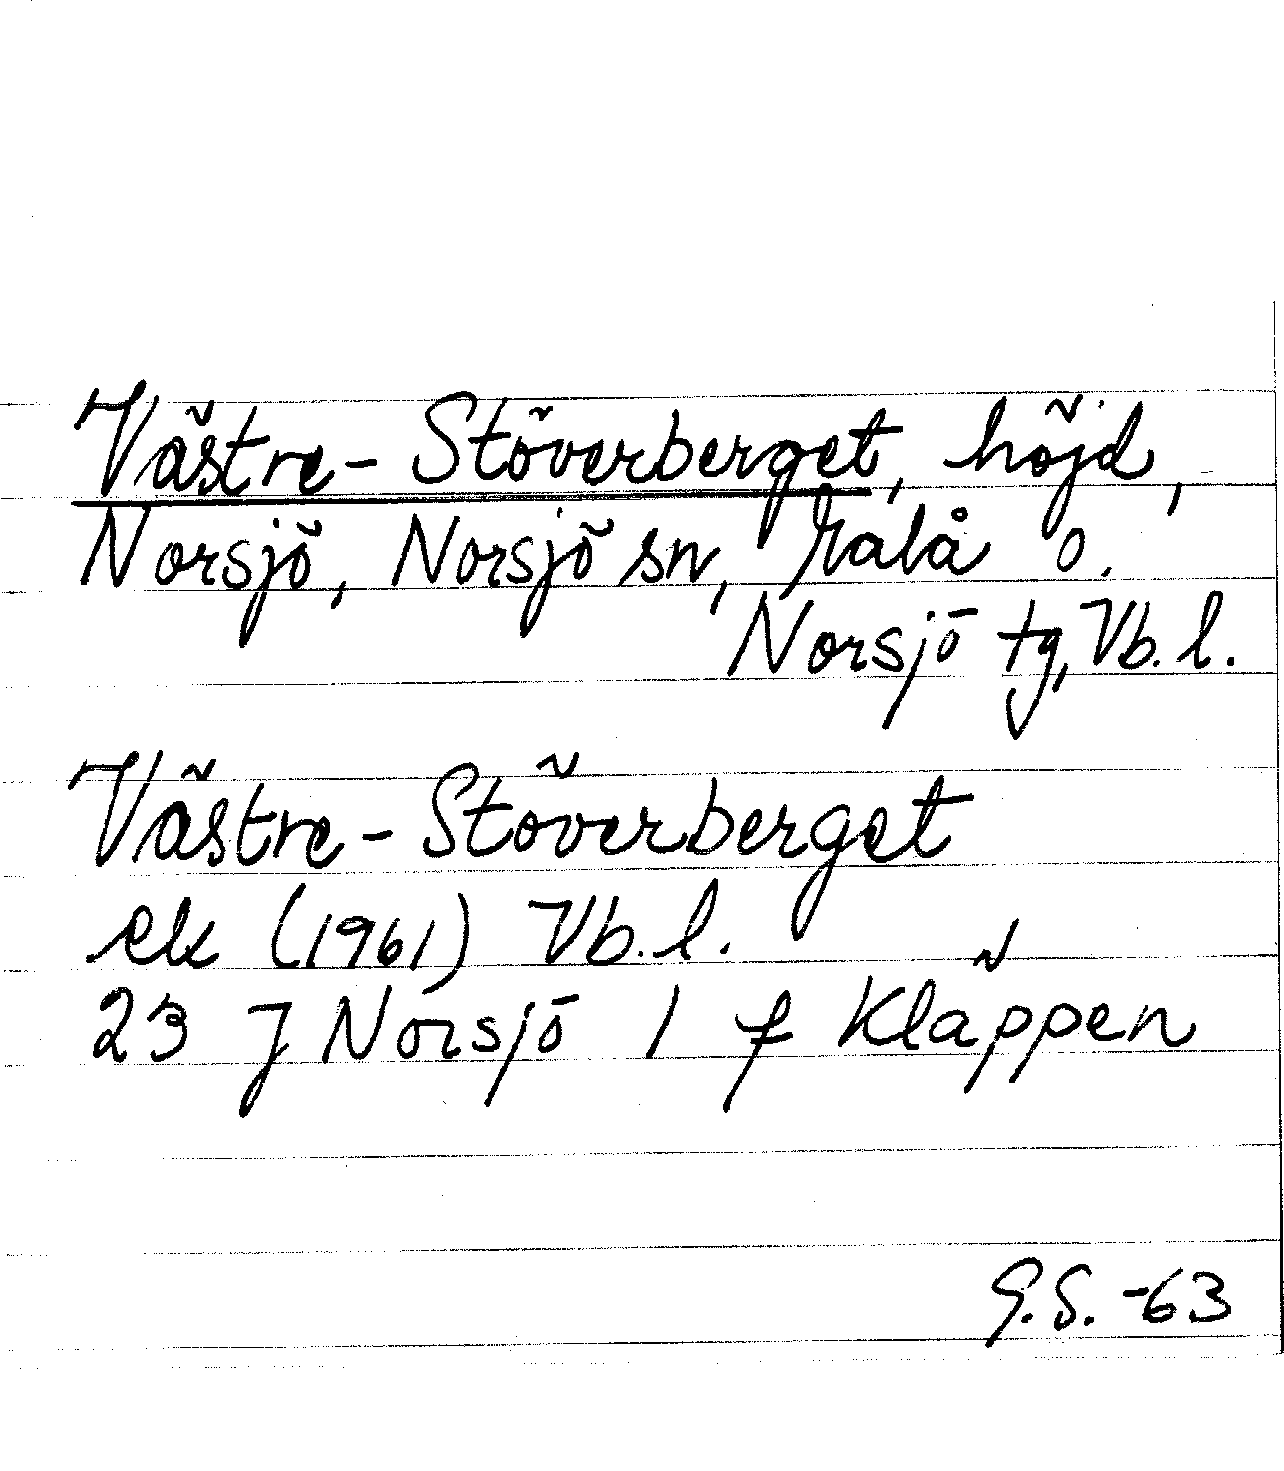 Västre-Stöverberget, höjd,
Norsjö, Norsjö sn, Malå o.
Norsjö tg, Vb. l.
Västre-Stöverberget
ek (1961) Vb. l.
23 J Norsjö 1 f Kläppen
G.S. -63